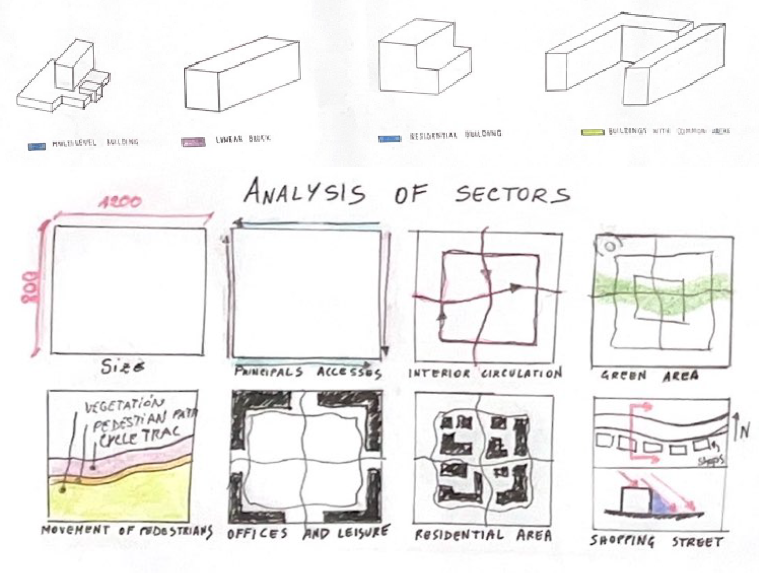 MULTILEVEL BUILDING
LINEAR BLOCK
RESIDENTIAL BUILDING
BUILDINGS WITH COMMON AREAS
ANALYSIS OF SECTORS
1200
800
SIZE
PRINCIPALS ACCESSES
INTERIOR CIRCULATION
GREEN AREA
VEGETATION
PEDESTIAN PATH
CYCLE TRAC
N
SHOPS
MOVEMENT OF PEDESTRIANS
OFFICES AND LEISURE
RESIDENTIAL AREA
SHOPPING STREET